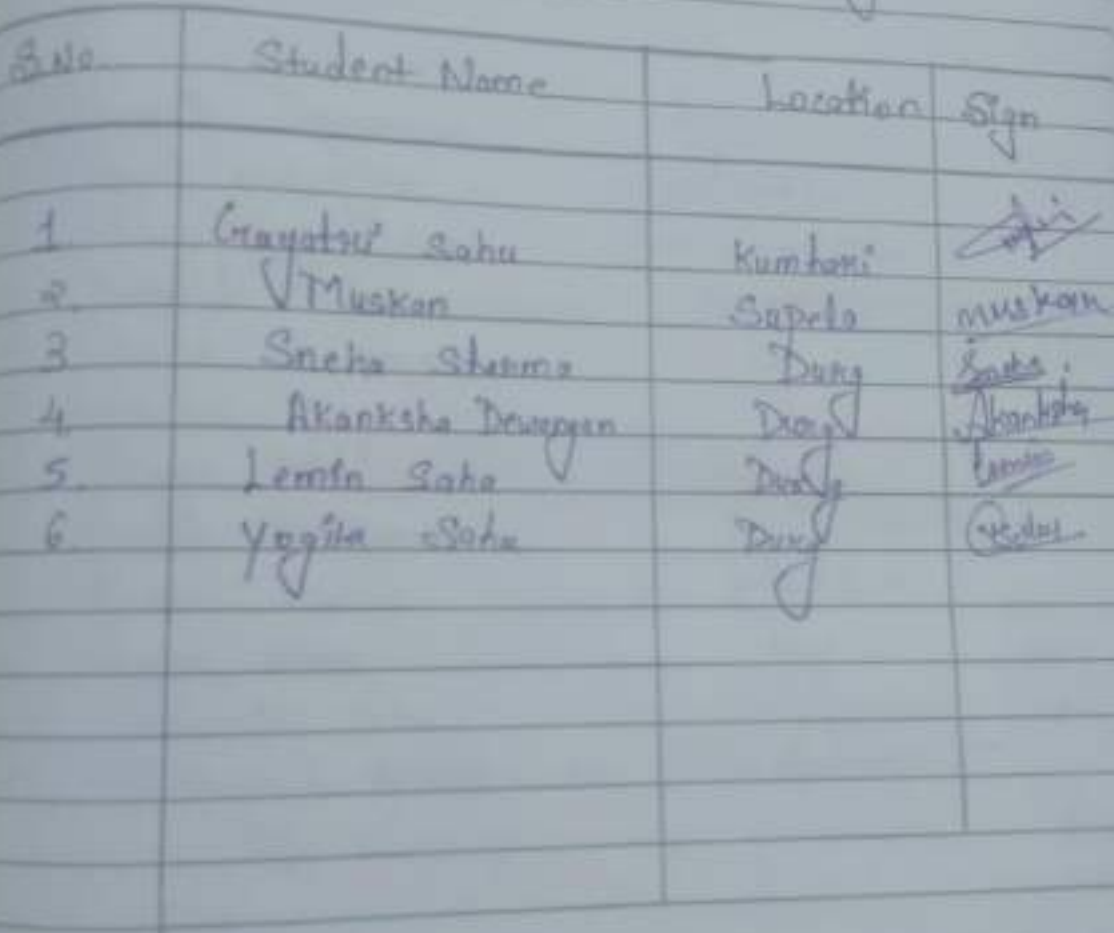 S.No. Student Name Location Sign
1 Gayatri Sahu Kumhari
2. Muskan Supela muskan
3 Sneha Sharma Durg Sneha
4. Akanksha Dewangan Durg Akanksha
5. Lemin Sahu Durg
6. Yogita Sahu Durg